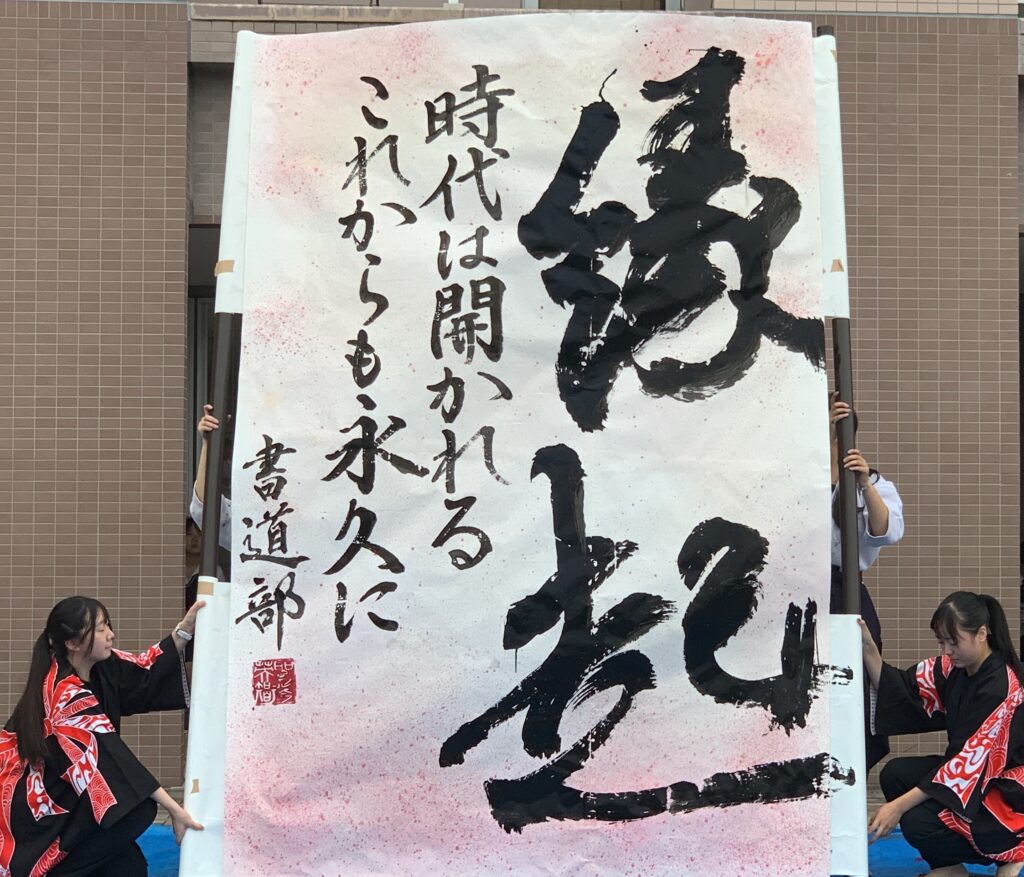 縁起
時代は開かれる
これからも永久に
書道部